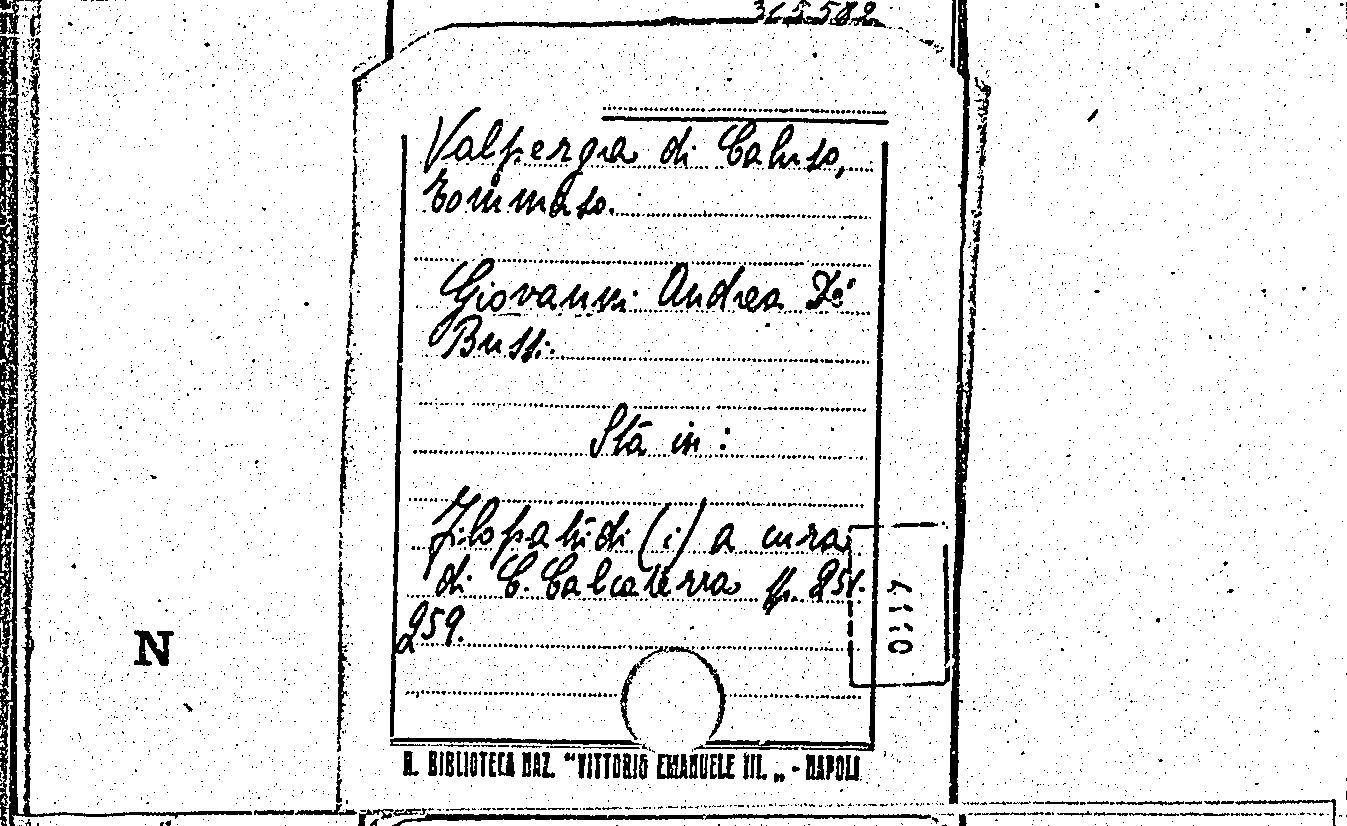 365582
Valperga di Caluso,
Tommaso.
Giovanni Andrea De'
Bussi.
Stà in:
Filopatridi (i) a cura
di C. Calcaterra pp. 251-
259.
N
R. BIBLIOTECA NAZ. "VITTORIO EMANUELE III. „ - NAPOLI